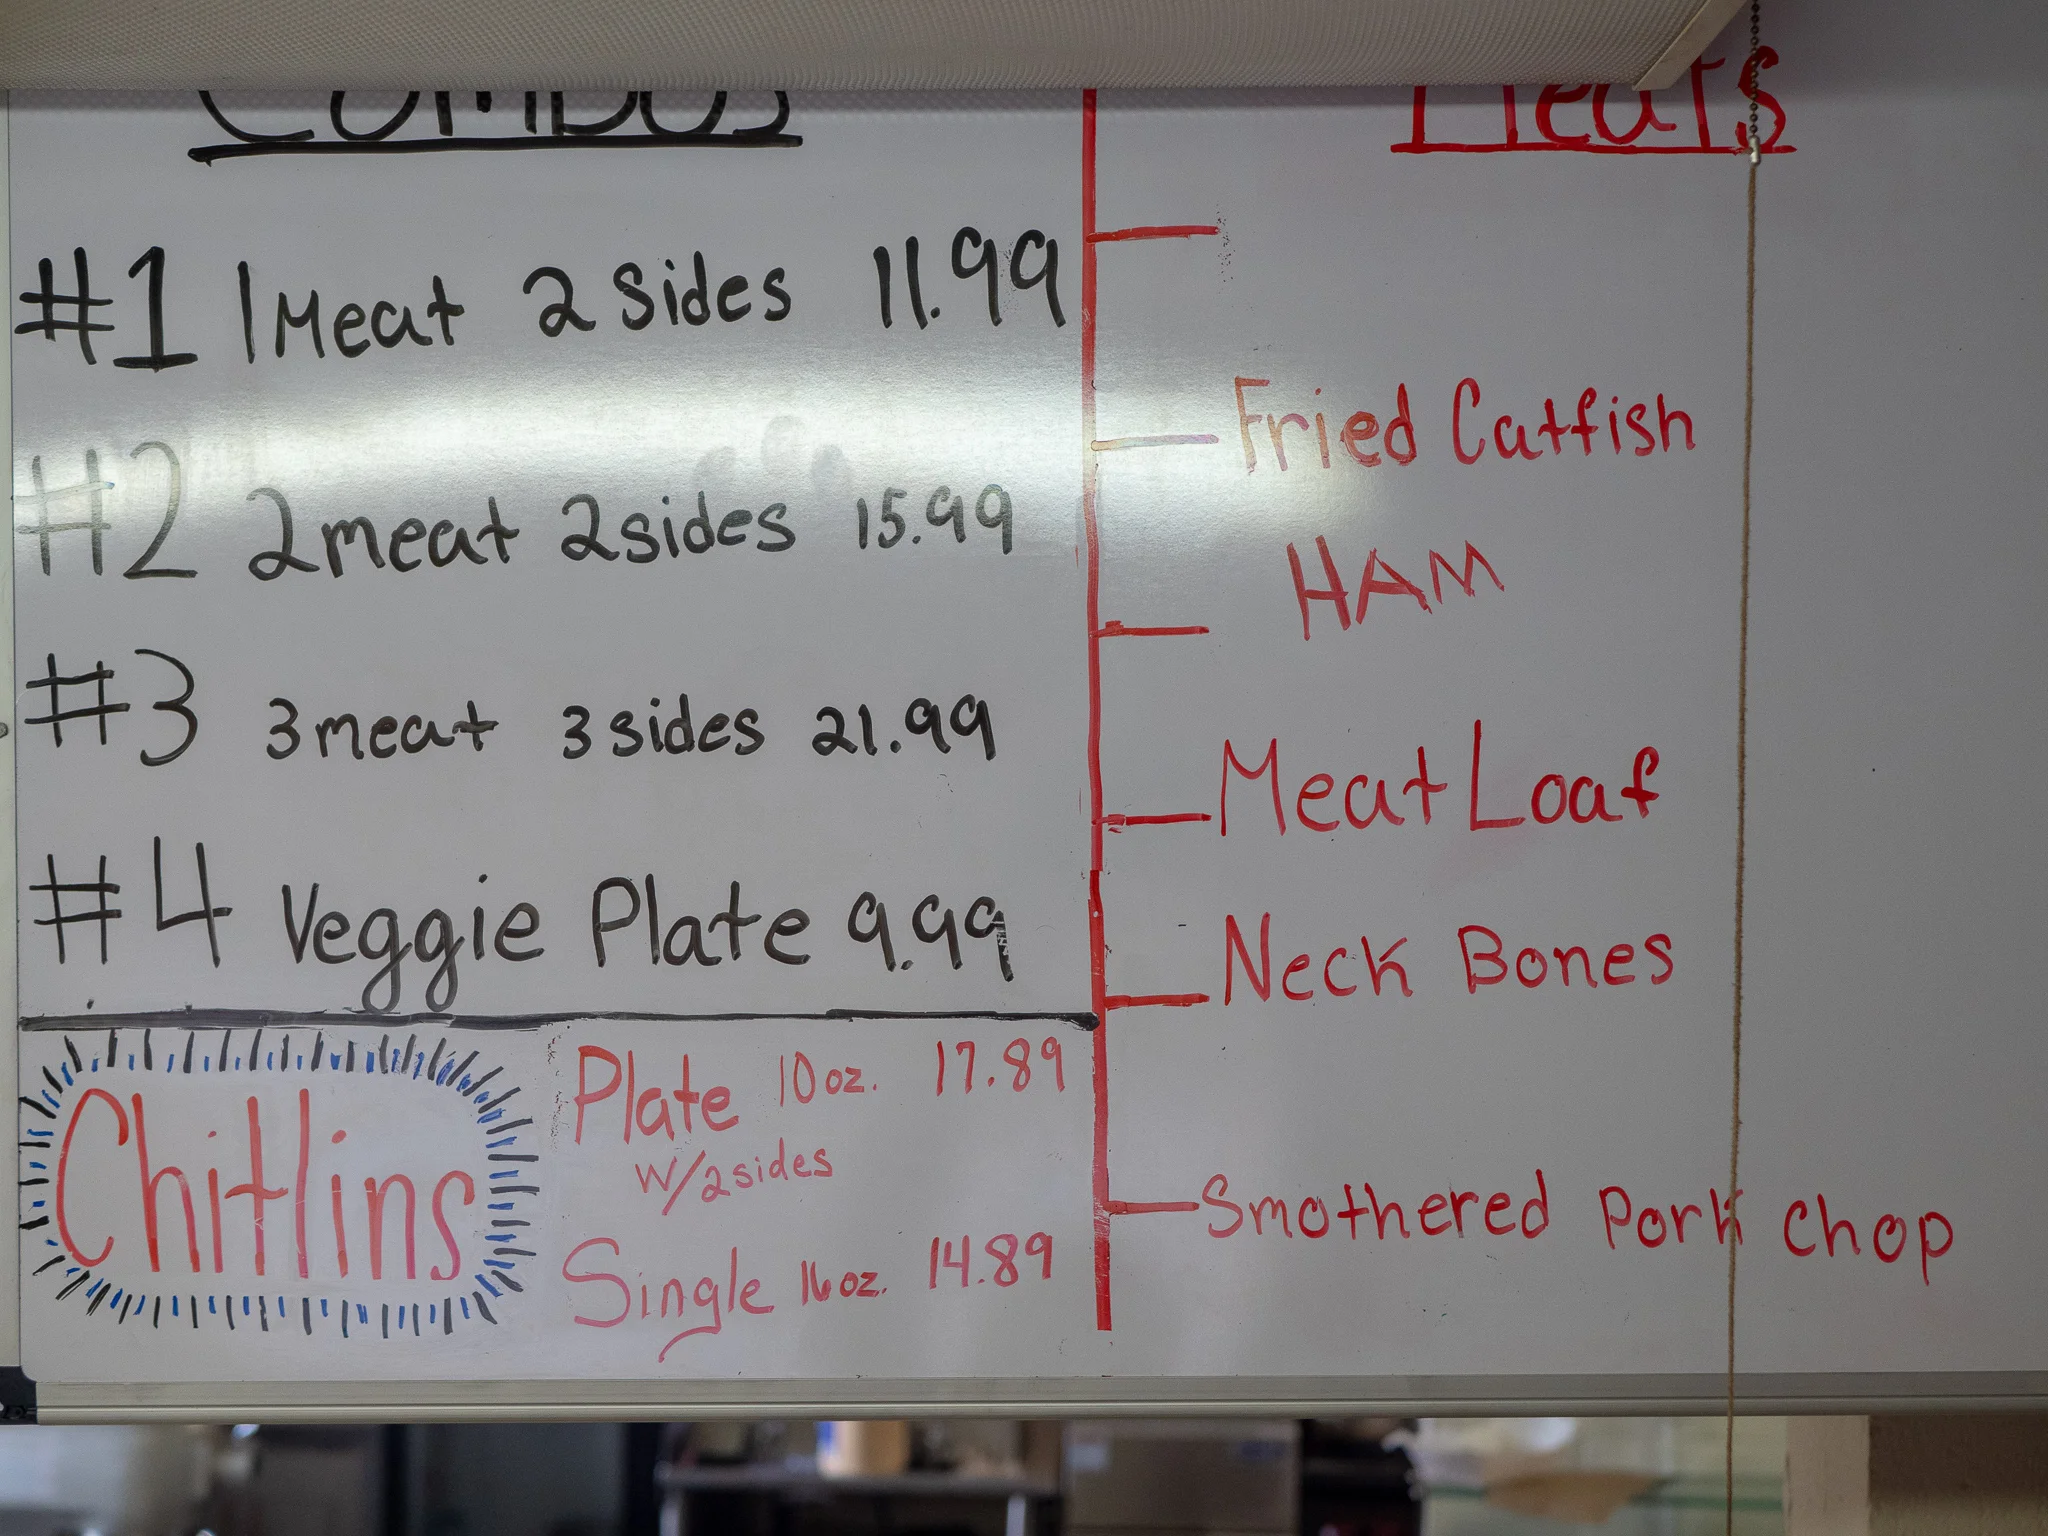 Combos
#1 1 Meat 2 Sides 11.99
#2 2 meat 2 sides 15.99
#3 3 meat 3 sides 21.99
#4 Veggie Plate 9.99
Chitlins
Plate 10 oz. 17.89
w/2 sides
Single 16 oz. 14.89
Meats
Fried Catfish
HAM
Meat Loaf
Neck Bones
Smothered Pork Chop